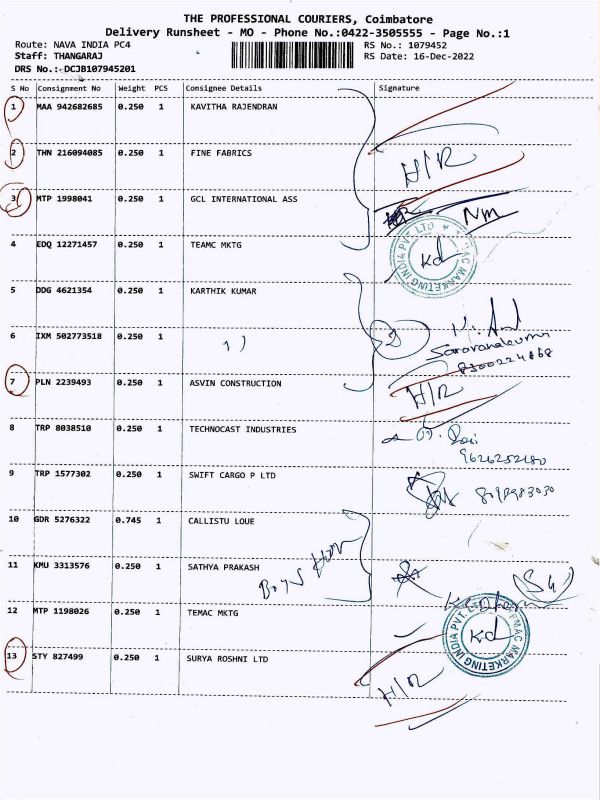 THE PROFESSIONAL COURIERS, Coimbatore
Delivery Runsheet - MO - Phone No.:0422-3505555 - Page No.:1
Route: NAVA INDIA PC4 RS No.: 1079452
Staff: THANGARAJ RS Date: 16-Dec-2022
DRS No.: DCJB107945201
S No Consignment No Weight PCS Consignee Details Signature
1 MAA 942682685 0.250 1 KAVITHA RAJENDRAN
2 THN 216094085 0.250 1 FINE FABRICS H/R
3 MTP 1998041 0.250 1 GCL INTERNATIONAL ASS Nm
4 EDQ 12271457 0.250 1 TEAMC MKTG Kd MARKETING INDIA PVT. LTD
5 DDG 4621354 0.250 1 KARTHIK KUMAR
6 IXM 502773518 0.250 1 Saravanakumar
8300224868
7 PLN 2239493 0.250 1 ASVIN CONSTRUCTION H/R
8 TRP 8038510 0.250 1 TECHNOCAST INDUSTRIES
9626252180
9 TRP 1577302 0.250 1 SWIFT CARGO P LTD
10 GDR 5276322 0.745 1 CALLISTU LOUE
11 KMU 3313576 0.250 1 SATHYA PRAKASH
12 MTP 1198026 0.250 1 TEMAC MKTG Kd MARKETING INDIA PVT. LTD
13 STY 827499 0.250 1 SURYA ROSHNI LTD H/R